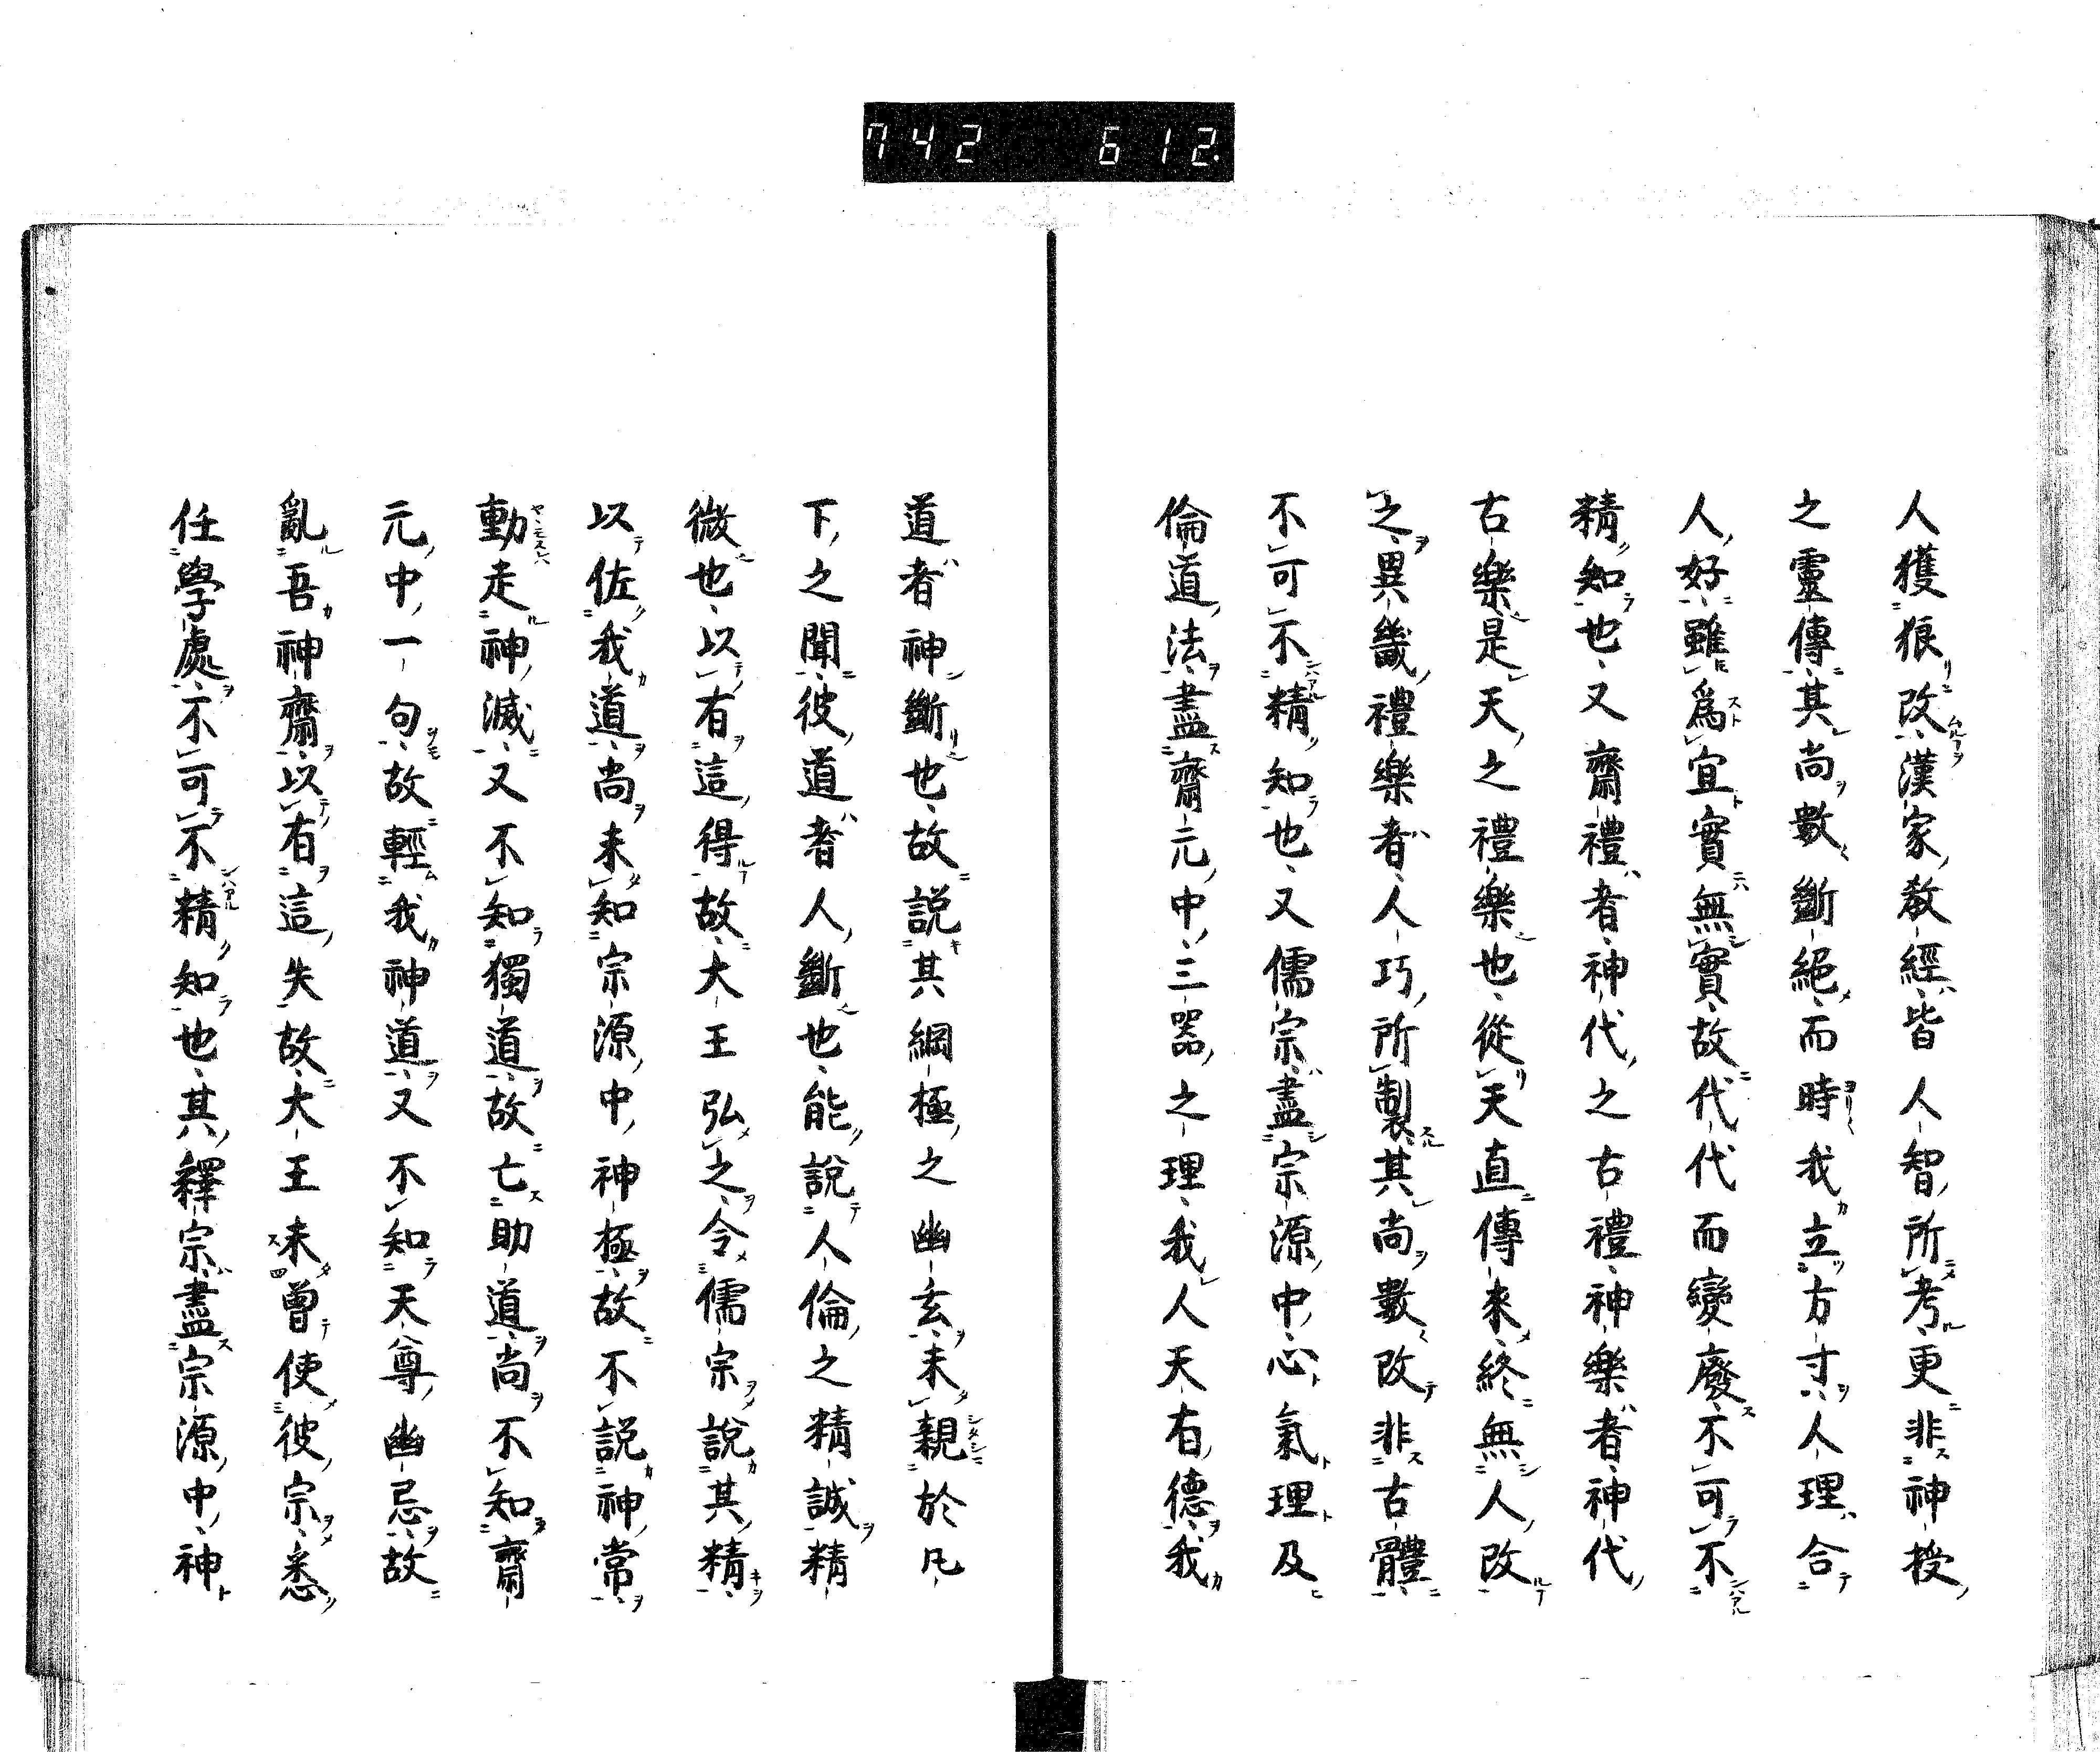 742 612.
人獲狼改漢家教經皆人智所考更非神授
之靈傳其尚數斷絕而時我立方寸人理合
人好雖爲宜實無實故代代而變廢不可不
精知也又齋禮者神代之古禮神樂者神代
古樂是天之禮樂也從天直傳來終無人改
之異畿禮樂者人巧所製其尚數改非古體
不可不精知也又儒宗盡宗源中心氣理及
倫道法盡齋元中三器之理我人天有德我
道者神斷也故說其綱極之幽玄未親於凡
下之聞彼道者人斷也能說人倫之精誠精
微也以有這得故大王弘之令儒宗說其精
以佐我道尚未知宗源中神極故不説神常
動走神滅又不知獨道故亡助道尚不知齋
元中一句故輕我神道又不知天尊幽忌故
亂吾神齋以有這失故大王未曾使彼宗悉
任學處不可不精知也其釋宗盡宗源中神